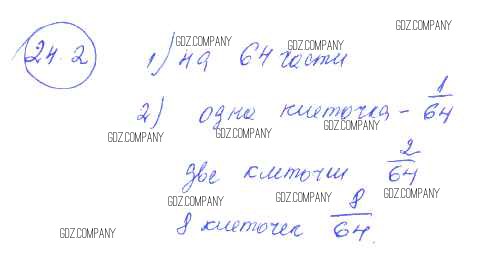 GDZ.COMPANY
24.2 1) на 64 части
GDZ.COMPANY GDZ.COMPANY
2) одна клеточка – 1/64
GDZ.COMPANY GDZ.COMPANY GDZ.COMPANY
две клеточки 2/64
GDZ.COMPANY GDZ.COMPANY GDZ.COMPANY
8 клеточек 8/64.
GDZ.COMPANY